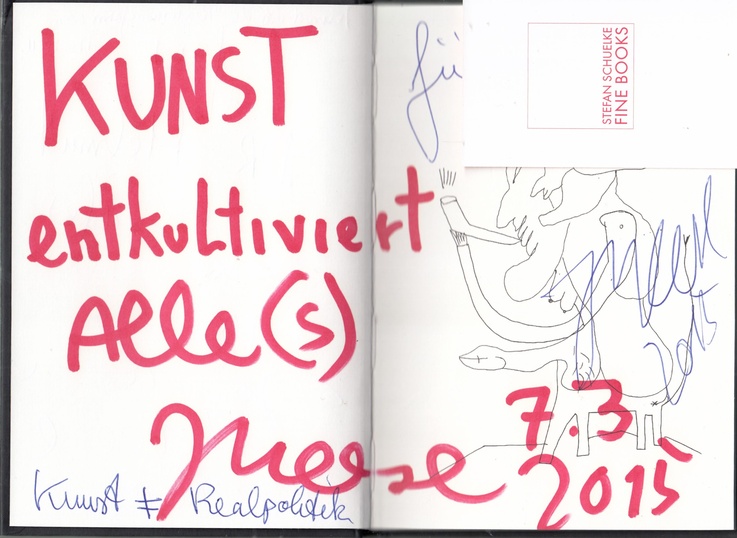 KUNST
entkultiviert
Alle(s)
Meese
Kunst ≠ Realpolitik
Für
STEFAN SCHUELKE
FINE BOOKS
Meese
2015
7.3
2015